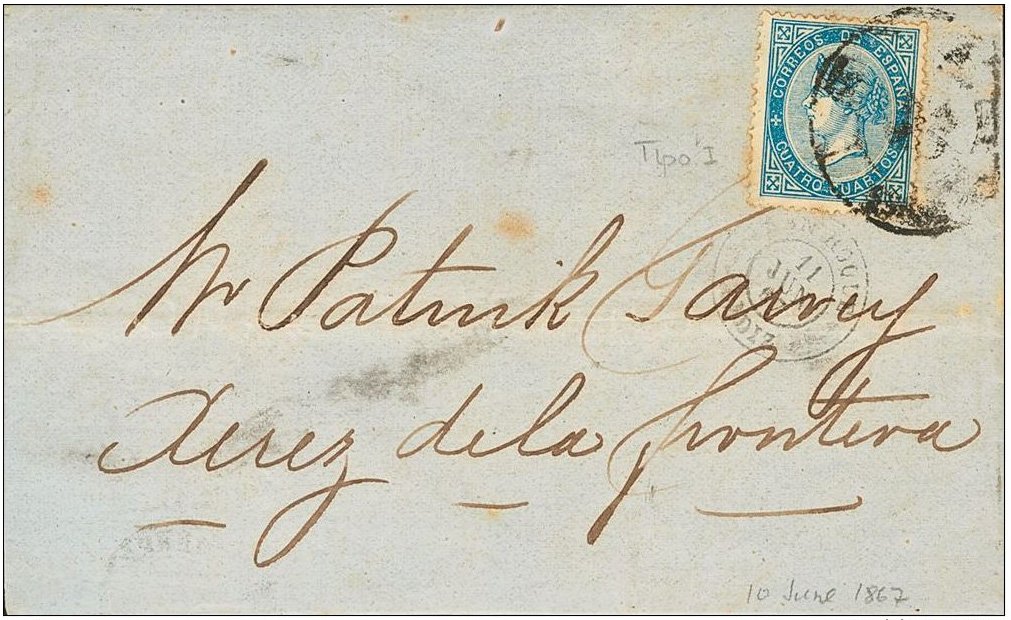 CORREOS DE ESPAÑA
CUATRO CUARTOS
Tipo I
11
JUN
Mr Patrick Garvey
Xerez de la frontera
10 June 1867